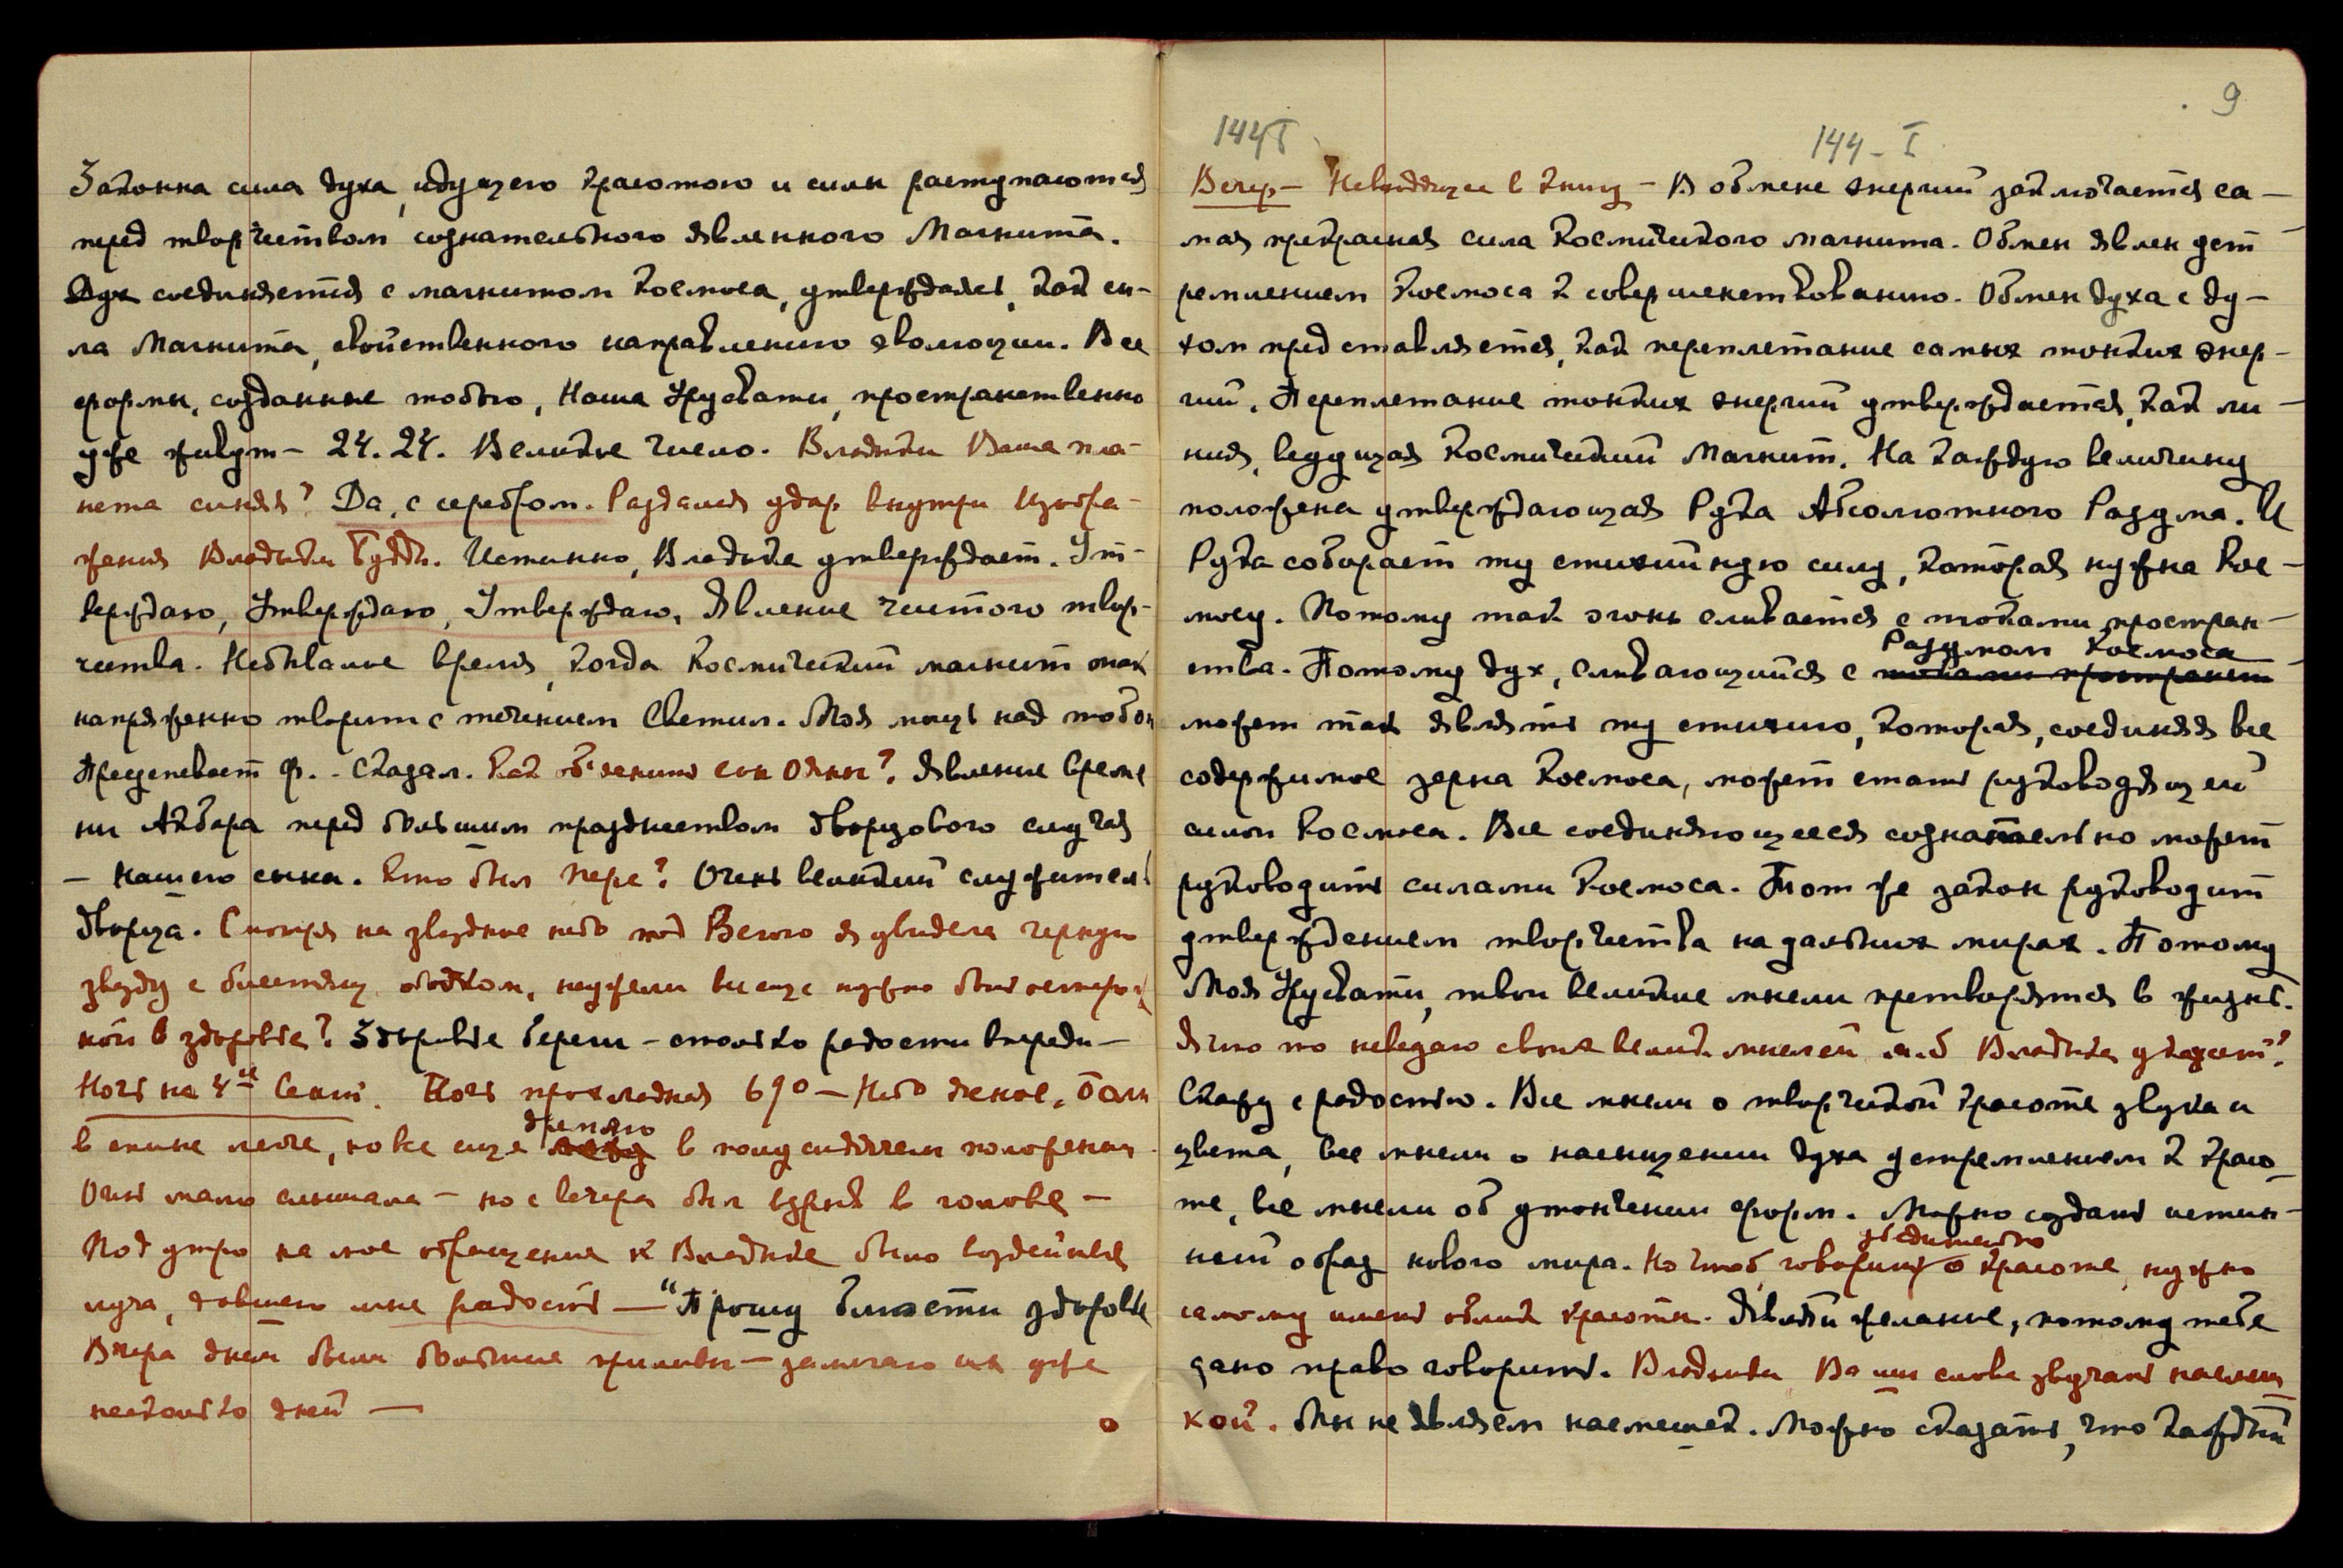 Законна сила духа, идущего красотою и силы расступаются
перед творчеством сознательного явленного Магнита.
Дух соединяется с магнитом Космоса, утверждаясь, как си-
ла Магнита, свойственного направлению эволюции. Все
формы, созданные тобою, Наша Урусвати, пространственно
уже живут — 24. 24. Великое число. Владыки Ваша пла-
нета синяя? Да, с серебром. Раздался удар внутри Изобра-
жения Владыки Будды. Истинно, Владыка утверждает. Ут-
верждаю, Утверждаю, Утверждаю. Явление чистого твор-
чества. Небывалое время, когда Космический магнит так
напряженно творит с течением Светил. Моя мощь над тобою
Преуспевает Ф. - Сказал. Как объяснить сон Ояны? Явление време
ни Акбара перед большим празднеством дворцового случая
— Нашего сына. Кто был Пере? Очень великий служитель
дворца. Смотря на звездное небо под Вегою я увидела черную
звезду с блестящ. ободком, неужели все еще нужно быть осторож
ной в здоровье? Здоровье береги — столько радости впереди —
Ночь на 4ое Сент. Ночь прохладная 69° — Небо ясное. Боли
дремлю
в спине легче, но все еще в полу сидячем положении
Очень мало слышала — но с вечера был взрыв в голове —
Под утро на мое обращение к Владыке было воздействие
луча, давшего мне радость — "Прошу блюсти здоровье
Вчера днем были большие приливы — замечаю их уже
несколько дней —
9
144 I
144 - I
Вечер — Невошедшее в книгу — В обмене энергий заключается са-
мая прекрасная сила Космического магнита. Обмен явлен уст
ремлением Космоса к совершенствованию. Обмен духа с ду-
хом представляется, как переплетание самых тонких энер-
гий. Переплетание тонких энергий утверждается, как ли-
ния, ведущая Космический Магнит. На каждую величину
положена утверждающая Рука Абсолютного Разума. И
Рука собирает ту стихийную силу, которая нужна Кос-
мосу. Потому так огонь сливается с токами простран-
Разумом Космоса
ства. Потому дух, сливающийся с токами пространст
может так являть ту стихию, которая, соединяя все
содержимое зерна Космоса, может стать руководящей
силой Космоса. Все соединяющееся сознательно может
руководить силами Космоса. Тот же закон руководит
утверждением творчества на дальних мирах. Потому
Моя Урусвати, твои великие мысли претворятся в жизнь.
Я что то неведаю своих велик. мыслей м.б Владыка укажет?
Скажу с радостью. Все мысли о творческой красоте звука и
цвета, все мысли о насыщении духа устремлением к красо
те, все мысли об утончении форм. Можно создать истин-
убедительно
ный образ нового мира. Но чтоб, говорить о красоте, нужно
самому иметь облик красоты. Являй желание, потому тебе
дано право говорить. Владыки Ваши слова звучат насмеш
кой. Мы не являем насмешек. Можно сказать, что каждый